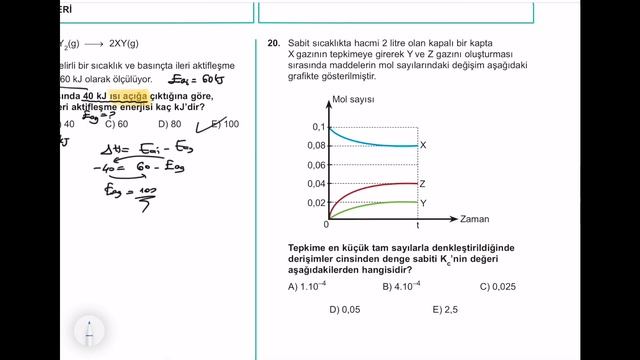 ERİ
Y₂(g) ⟶ 2XY(g)
elirli bir sıcaklık ve basınçta ileri aktifleşme
60 kJ olarak ölçülüyor. Eai = 60kJ
ında 40 kJ ısı açığa çıktığına göre,
eri aktifleşme enerjisi kaç kJ'dir?
Eag = ?
) 40 C) 60 D) 80 E) 100
kJ
ΔH = Eai - Eag
-40 = 60 - Eag
Eag = 100
20. Sabit sıcaklıkta hacmi 2 litre olan kapalı bir kapta
X gazının tepkimeye girerek Y ve Z gazını oluşturması
sırasında maddelerin mol sayılarındaki değişim aşağıdaki
grafikte gösterilmiştir.
Mol sayısı
0,1
0,08
0,06
0,04
0,02
0
X
Z
Y
t
Zaman
Tepkime en küçük tam sayılarla denkleştirildiğinde
derişimler cinsinden denge sabiti Kc'nin değeri
aşağıdakilerden hangisidir?
A) 1.10⁻⁴ B) 4.10⁻⁴ C) 0,025
D) 0,05 E) 2,5